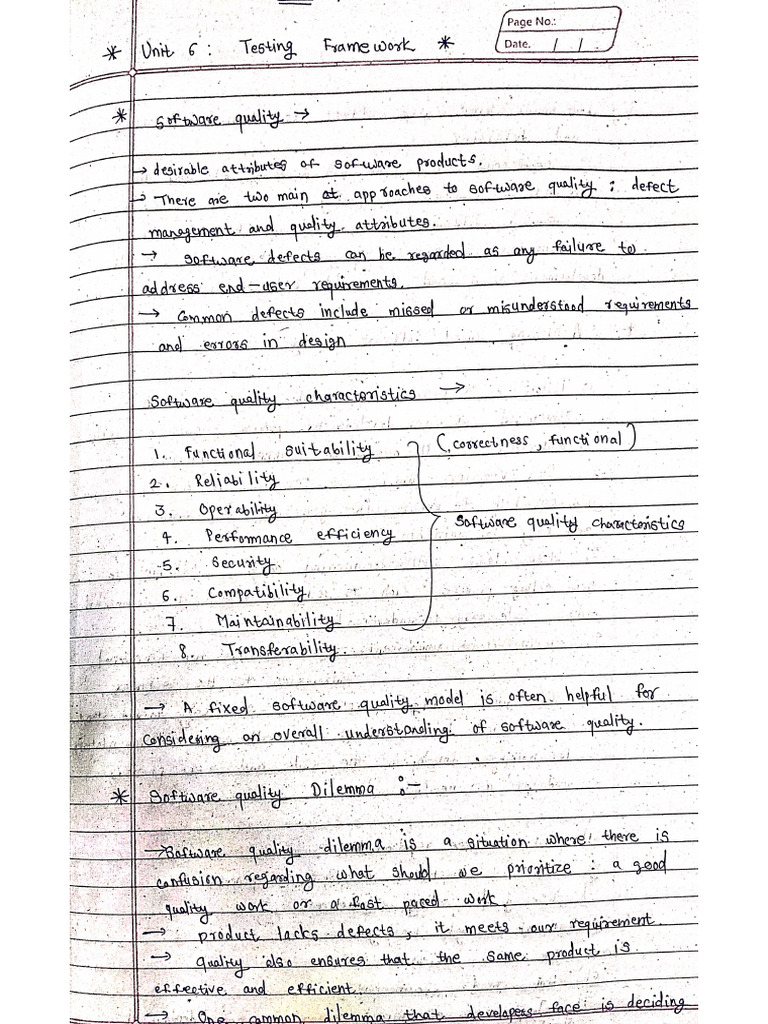 Page No.:
Date. / /
* Unit 6 : Testing Framework *
* Software quality →
→ desirable attributes of software products.
→ There are two main at approaches to software quality : defect
management and quality attributes.
→ Software defects can be regarded as any failure to
address end-user requirements.
→ Common defects include missed or misunderstood requirements
and errors in design
Software quality characteristics →
1. Functional suitability (correctness, functional)
2. Reliability
3. Operability
4. Performance efficiency
Software quality characteristics
5. Security
6. Compatibility
7. Maintainability
8. Transferability.
→ A fixed software quality model is often helpful for
considering an overall understanding of software quality.
* Software quality Dilemma :-
→ Software quality dilemma is a situation where there is
confusion regarding what should we prioritize : a good
quality work or a fast paced work.
→ product lacks defects, it meets our requirement
→ quality also ensures that the same product is
effective and efficient.
→ One common dilemma that developers face is deciding